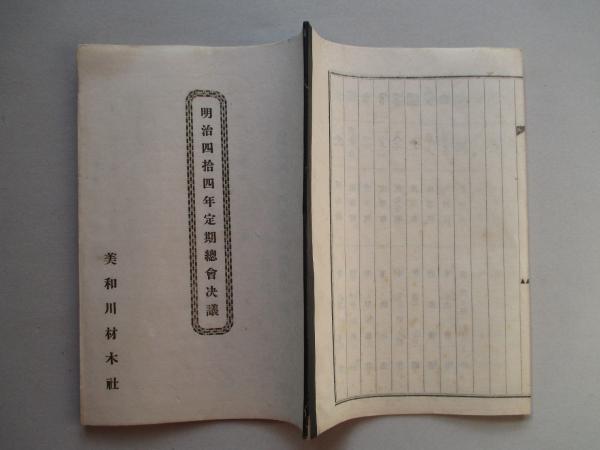 明治四拾四年定期總會决議
美和川材木社